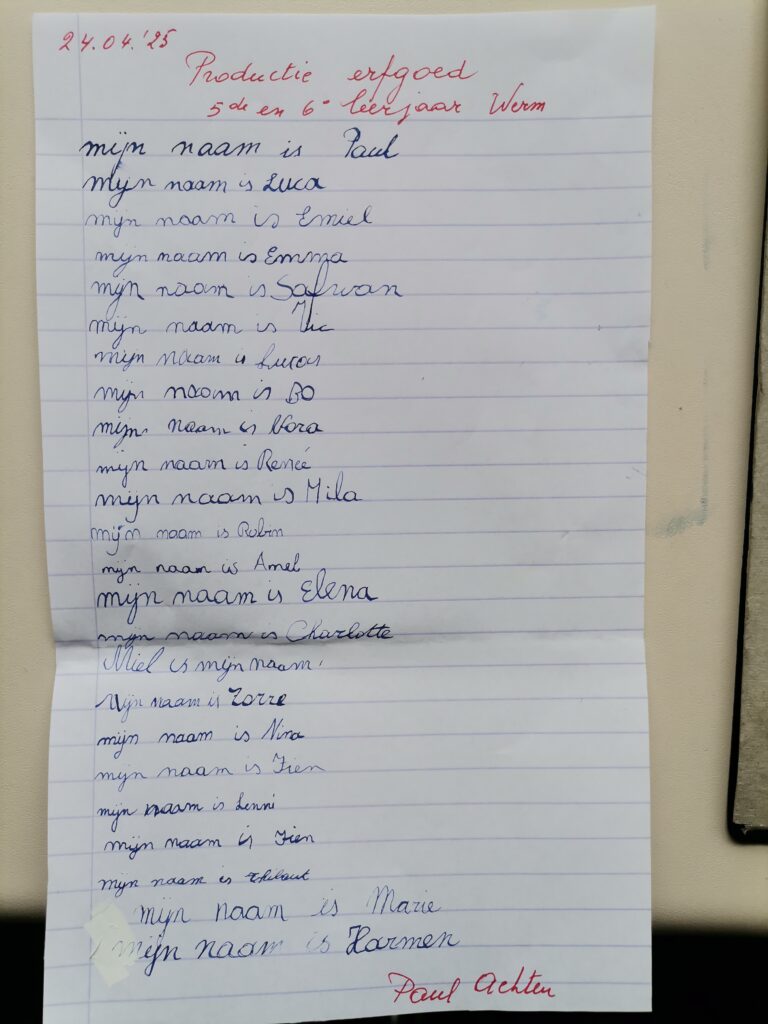 24.04.'25
Productie erfgoed
5de en 6e leerjaar Werm
mijn naam is Paul
Mijn naam is Luca
mijn naam is Emiel
mijn naam is Emma
mijn naam is Safwan
mijn naam is Vic
mijn naam is Lucas
mijn naam is Bo
mijn naam is Nora
mijn naam is Reneé
mijn naam is Mila
mijn naam is Robin
mijn naam is Amel
mijn naam is Elena
mijn naam is Charlotte
Miel is mijn naam.
Mijn naam is Torre
mijn naam is Nina
mijn naam is Fien
mijn naam is Lenni
mijn naam is Fien
mijn naam is Thibaut
mijn naam is Marie
mijn naam is Harmen
Paul Achten